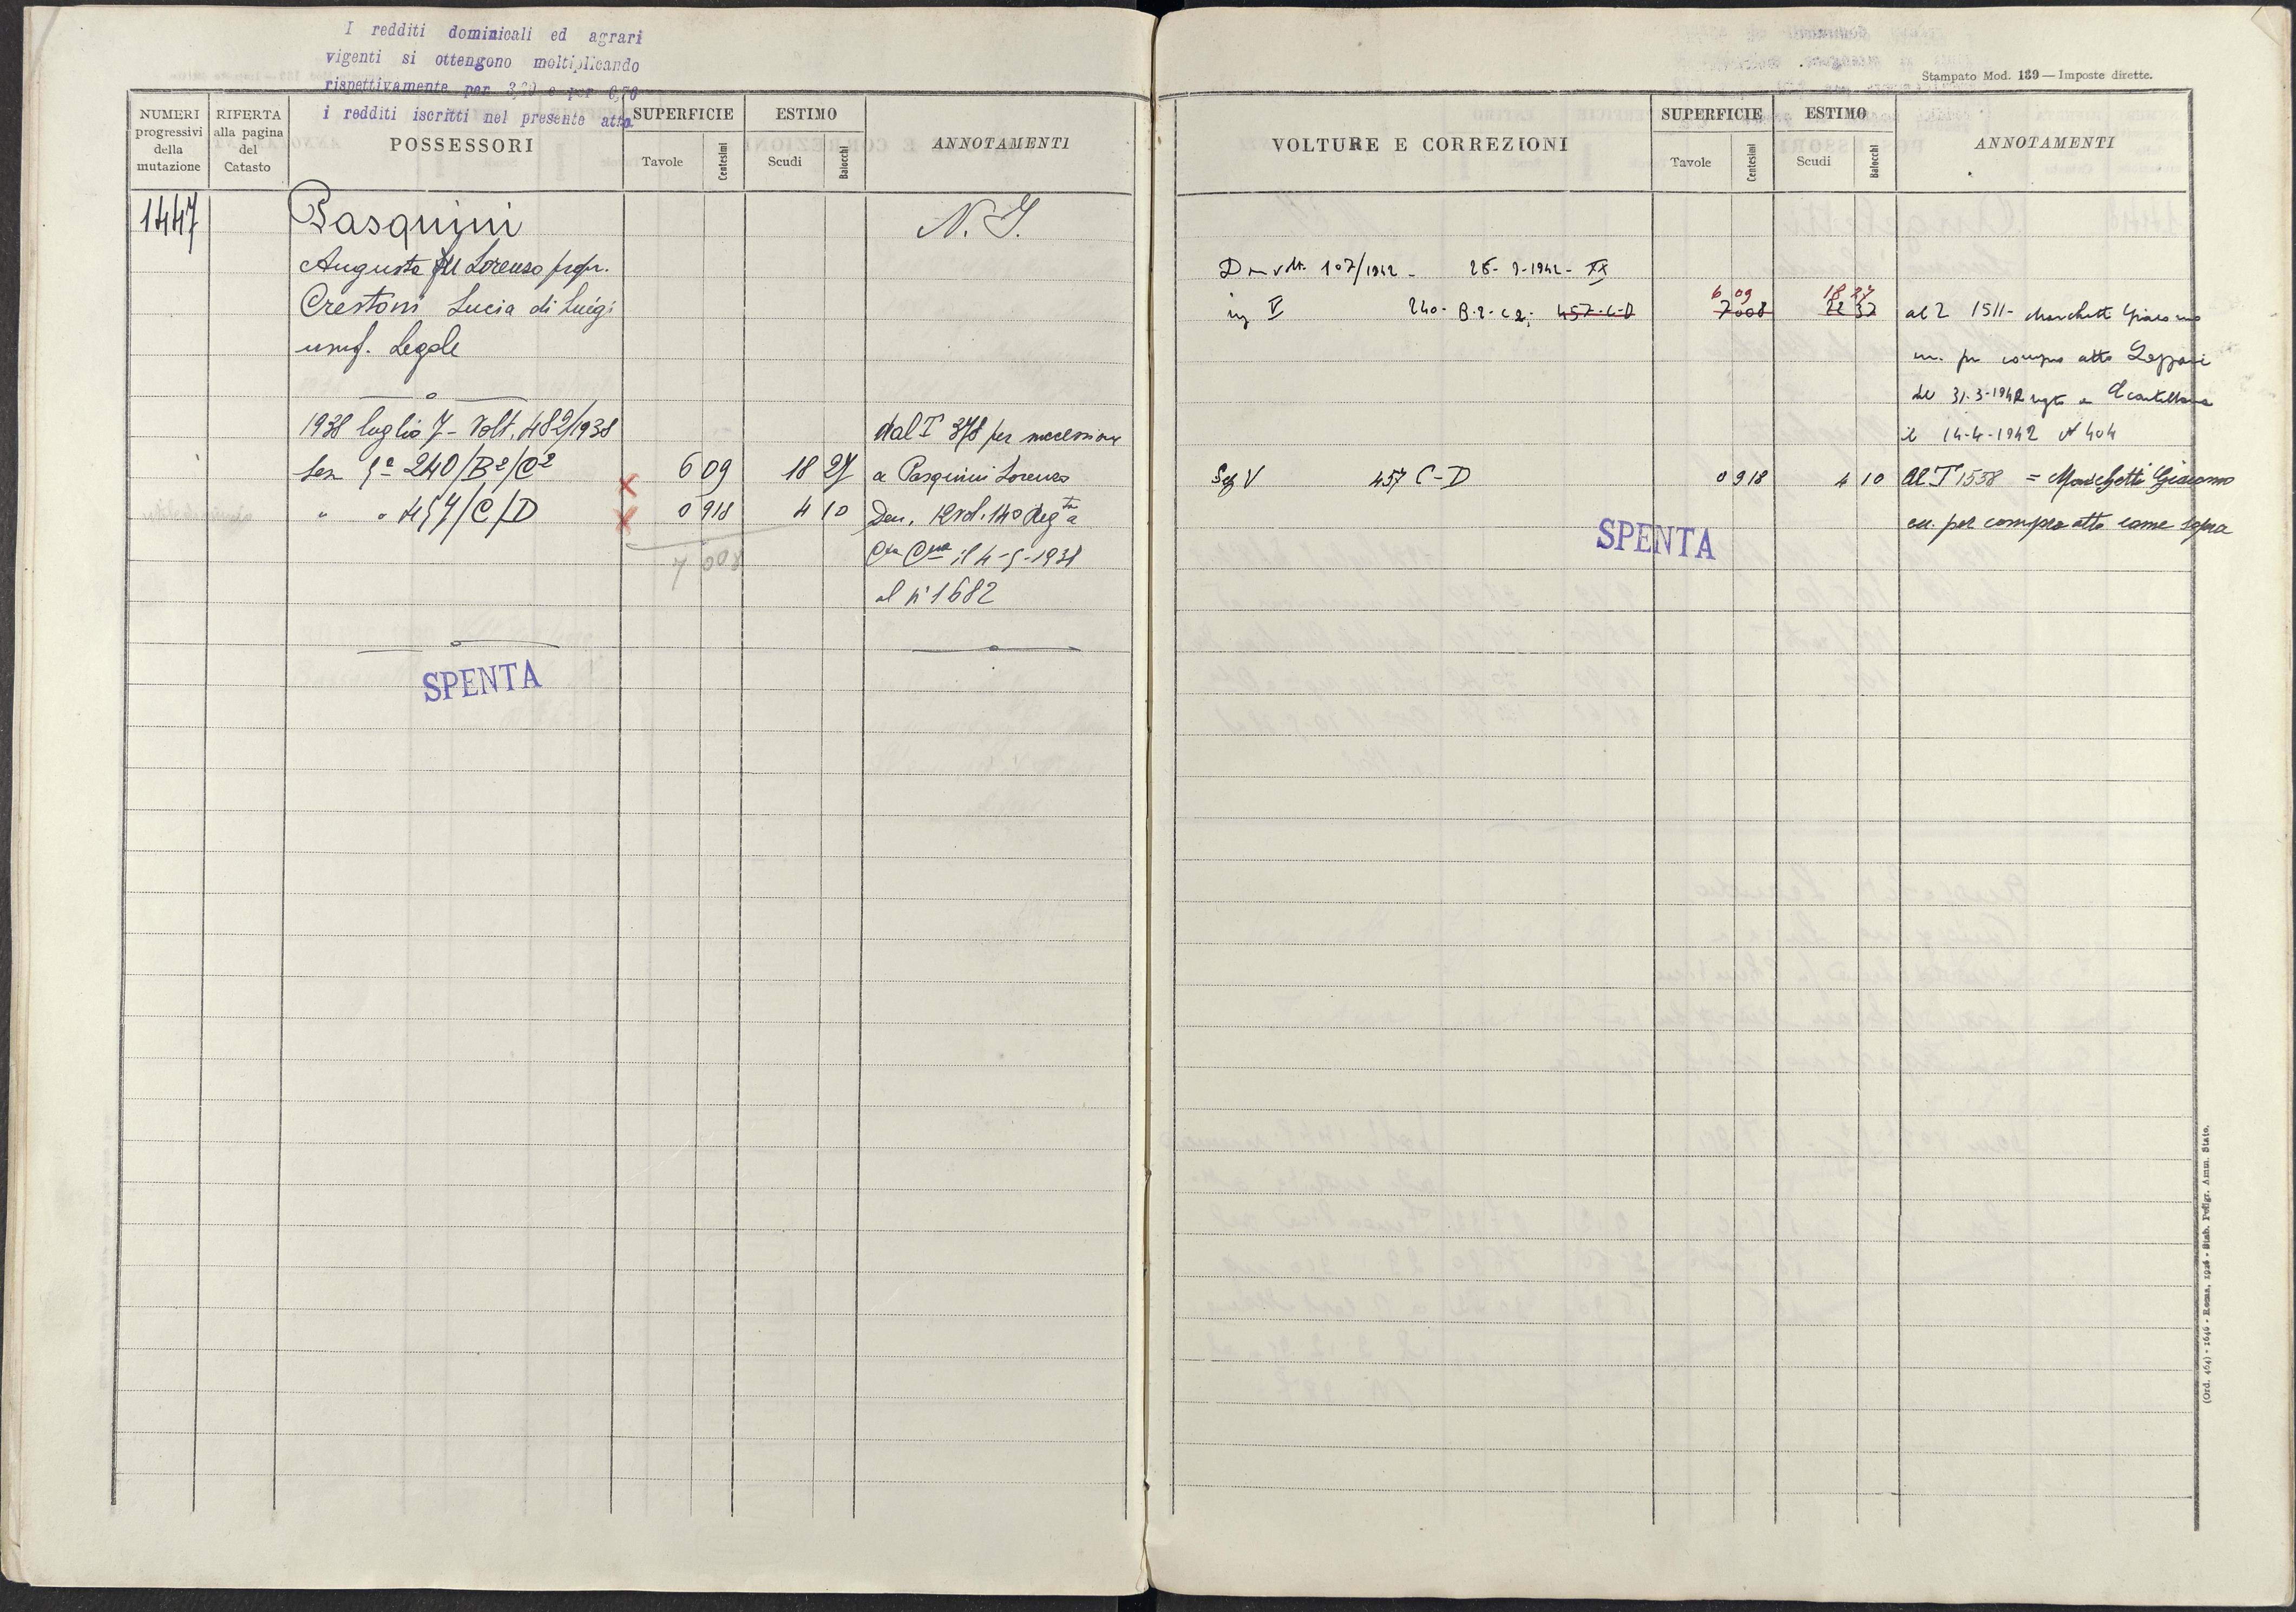 I redditi dominicali ed agrari
vigenti si ottengono moltiplicando
rispettivamente per 3,20 e per 0,70
i redditi iscritti nel presente atto
NUMERI progressivi della mutazione
RIFERTA alla pagina del Catasto
POSSESSORI
SUPERFICIE
Tavole
Centesimi
ESTIMO
Scudi
Baiocchi
ANNOTAMENTI
1447
Pasquini
N. I.
Augusta fu Lorenzo propr.
Crestoni Lucia di Luigi
usuf. Legale
1938 luglio 7 - Volt. 482/1938
dal T 378 per successione
Sez 5ª 240/B²/C² 6 09 18 27 a Pasquini Lorenzo
" " 457/C/D 0 918 4 10 Den. 12 vol. 140 Reg ta a
7 008
il 4-5-1938
al n° 1682
SPENTA
Stampato Mod. 139 — Imposte dirette.
VOLTURE E CORREZIONI
SUPERFICIE
Tavole
Centesimi
ESTIMO
Scudi
Baiocchi
ANNOTAMENTI
107/1942 - XX
6 09 18 27
V 240- B.2-C2; 457-C-D 7 008 22 37 al T 1511- Marchetti Giacomo
per compra atto
del 31-3-1942
il 14-4-1942 N 404
Sez V 457 C-D 0 918 4 10 Al T 1538 = Marchetti Giacomo
per compra atto come sopra
SPENTA
(Ord. 464) - 1646 - Roma, 1926 - Stab. Poligr. Amm. Stato.